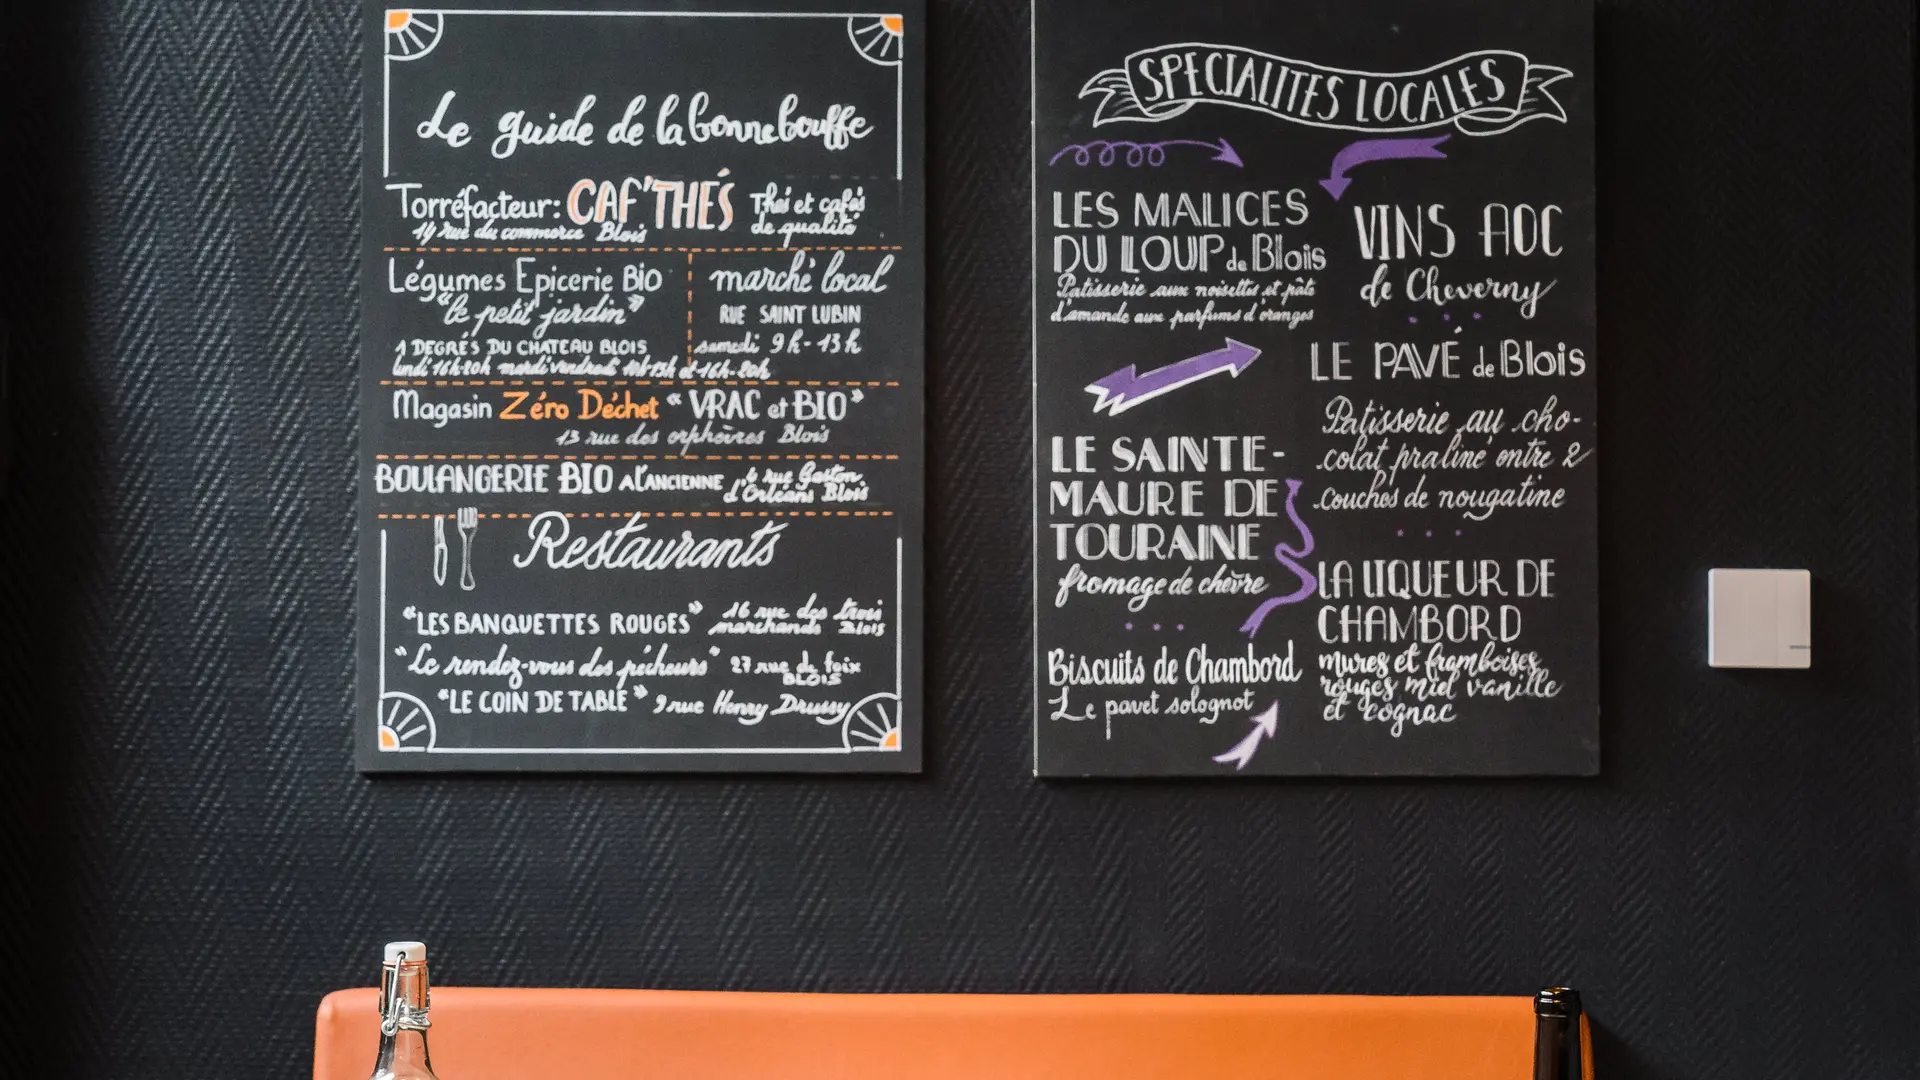 Le guide de la bonne bouffe
Torréfacteur: CAF'THÉS Thés et cafés
de qualité
14 rue du commerce Blois
Légumes Epicerie Bio
"le petit jardin"
1 DEGRÉS DU CHATEAU BLOIS
lundi 16h-20h mardi vendredi 10h-13h et 16h-20h
marché local
RUE SAINT LUBIN
samedi 9h-13h
Magasin Zéro Déchet "VRAC et BIO"
13 rue des orphelines Blois
BOULANGERIE BIO A L'ANCIENNE 6 rue Gaston
d'Orléans Blois
Restaurants
"LES BANQUETTES ROUGES" 16 rue des trois
marchands BLOIS
"Le rendez-vous des pêcheurs" 27 rue de foix
BLOIS
"LE COIN DE TABLE" 9 rue Henry Drussy
SPECIALITES LOCALES
LES MALICES
DU LOUP de Blois
Patisserie aux noisettes et pâte
d'amande aux parfums d'oranges
LE SAINTE-
MAURE DE
TOURAINE
fromage de chèvre
Biscuits de Chambord
Le pavet solognot
VINS AOC
de Cheverny
LE PAVÉ de Blois
Patisserie au cho-
colat praliné entre 2
couches de nougatine
LA LIQUEUR DE
CHAMBORD
mures et framboises
rouges miel vanille
et cognac